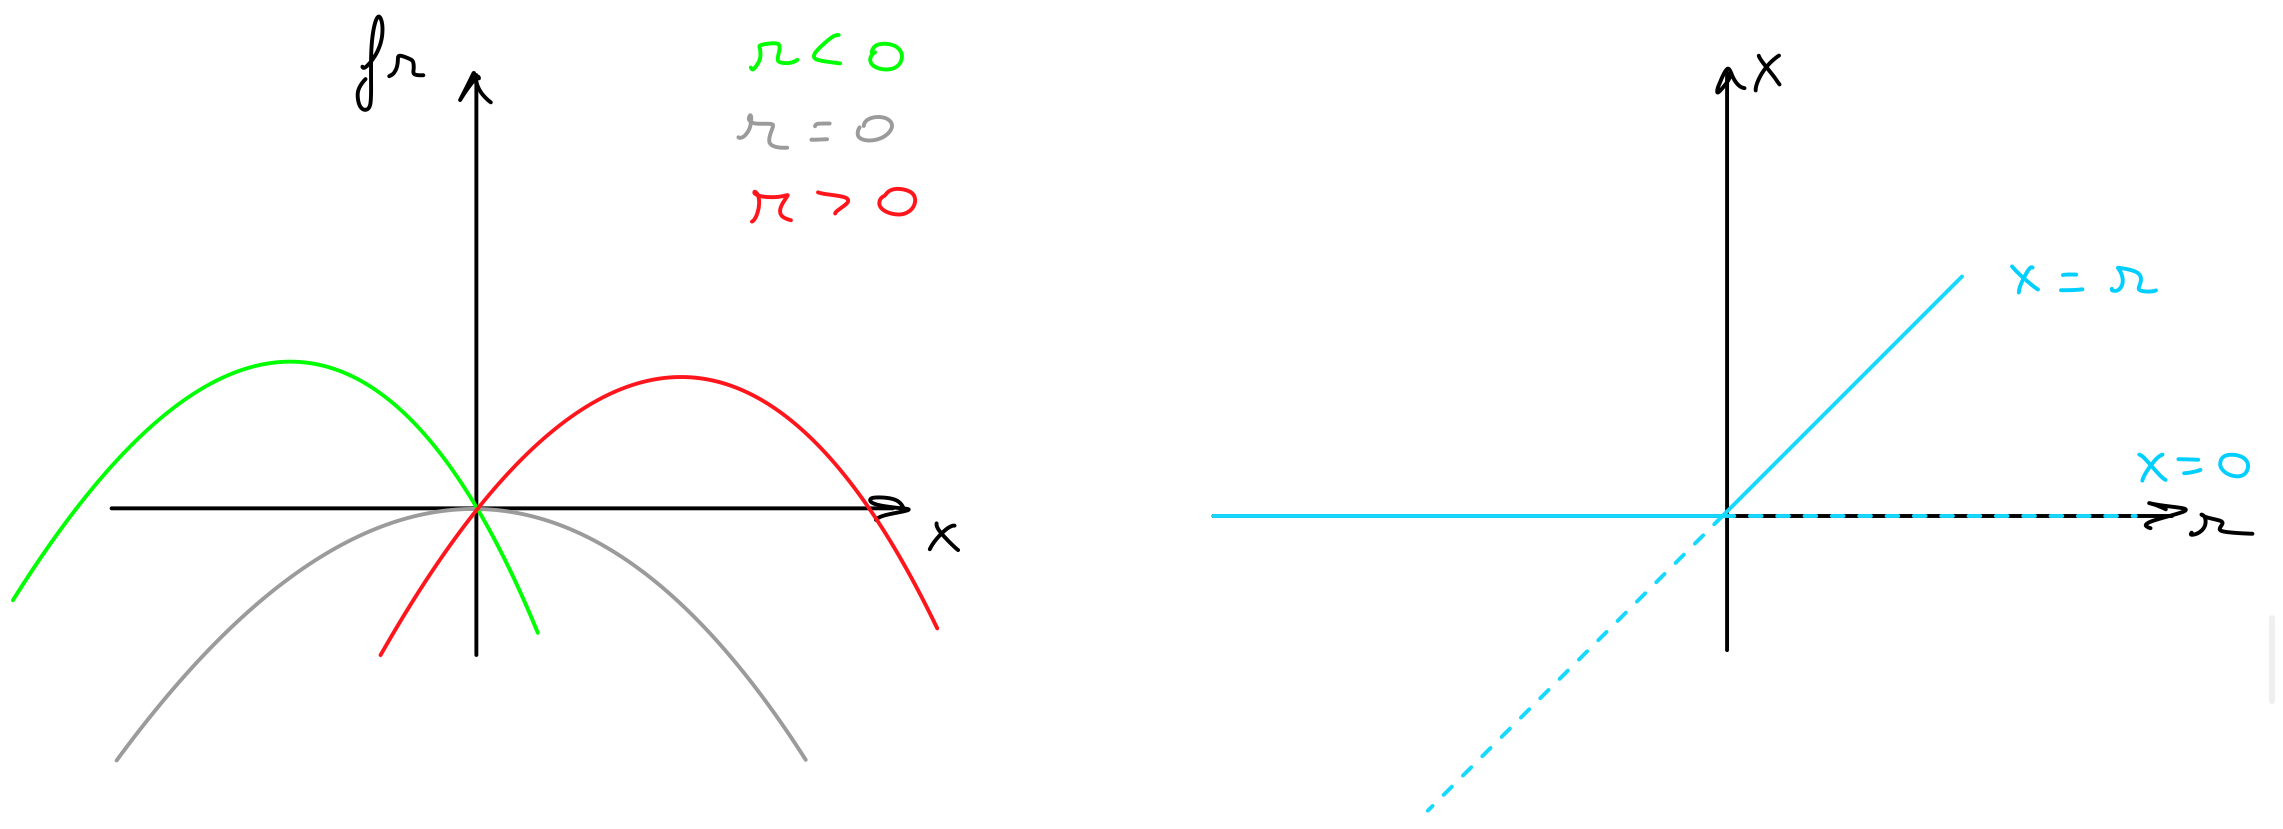 fr
r < 0
r = 0
r > 0
x
x
x = r
x = 0
r